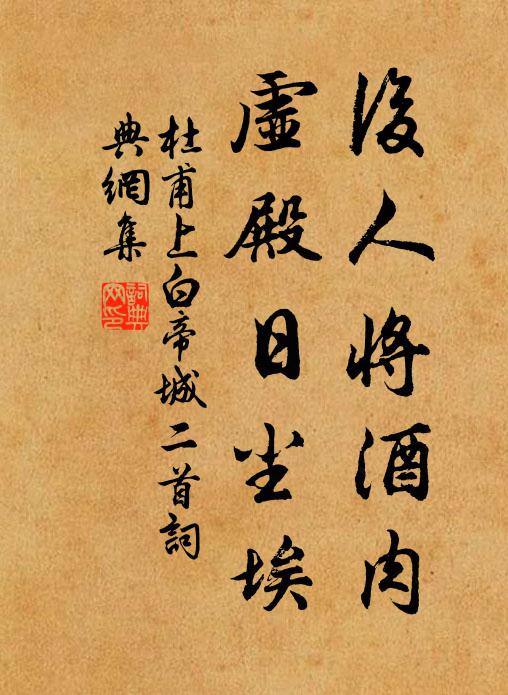 後人将酒肉
虛殿日尘埃
杜甫上白帝城二首詞
典網集
詞典
网印